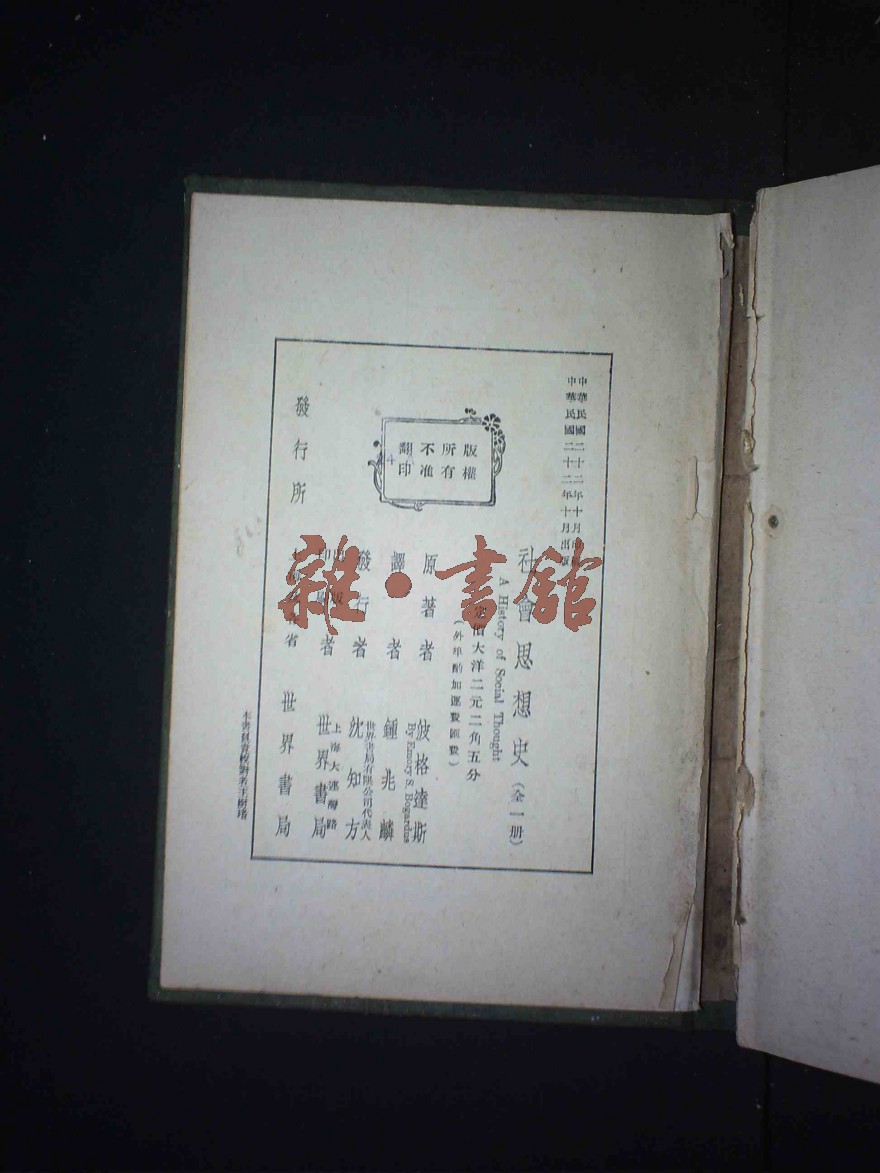 中華民國二十二年十月
中華民國二十二年十月出版
社會思想史(全一册)
A History of Social Thought
定價大洋二元二角五分
(外埠酌加運費匯費)
版權
所有
不准
翻印
原著者 波格達斯
By Emory S. Bogardus
譯者 鍾兆麟
發行者 世界書局有限公司代表人
沈知方
出版
印刷者 上海大連灣路
世界書局
發行所 省 世界書局
本書負責校對者王樹培
雜·書館